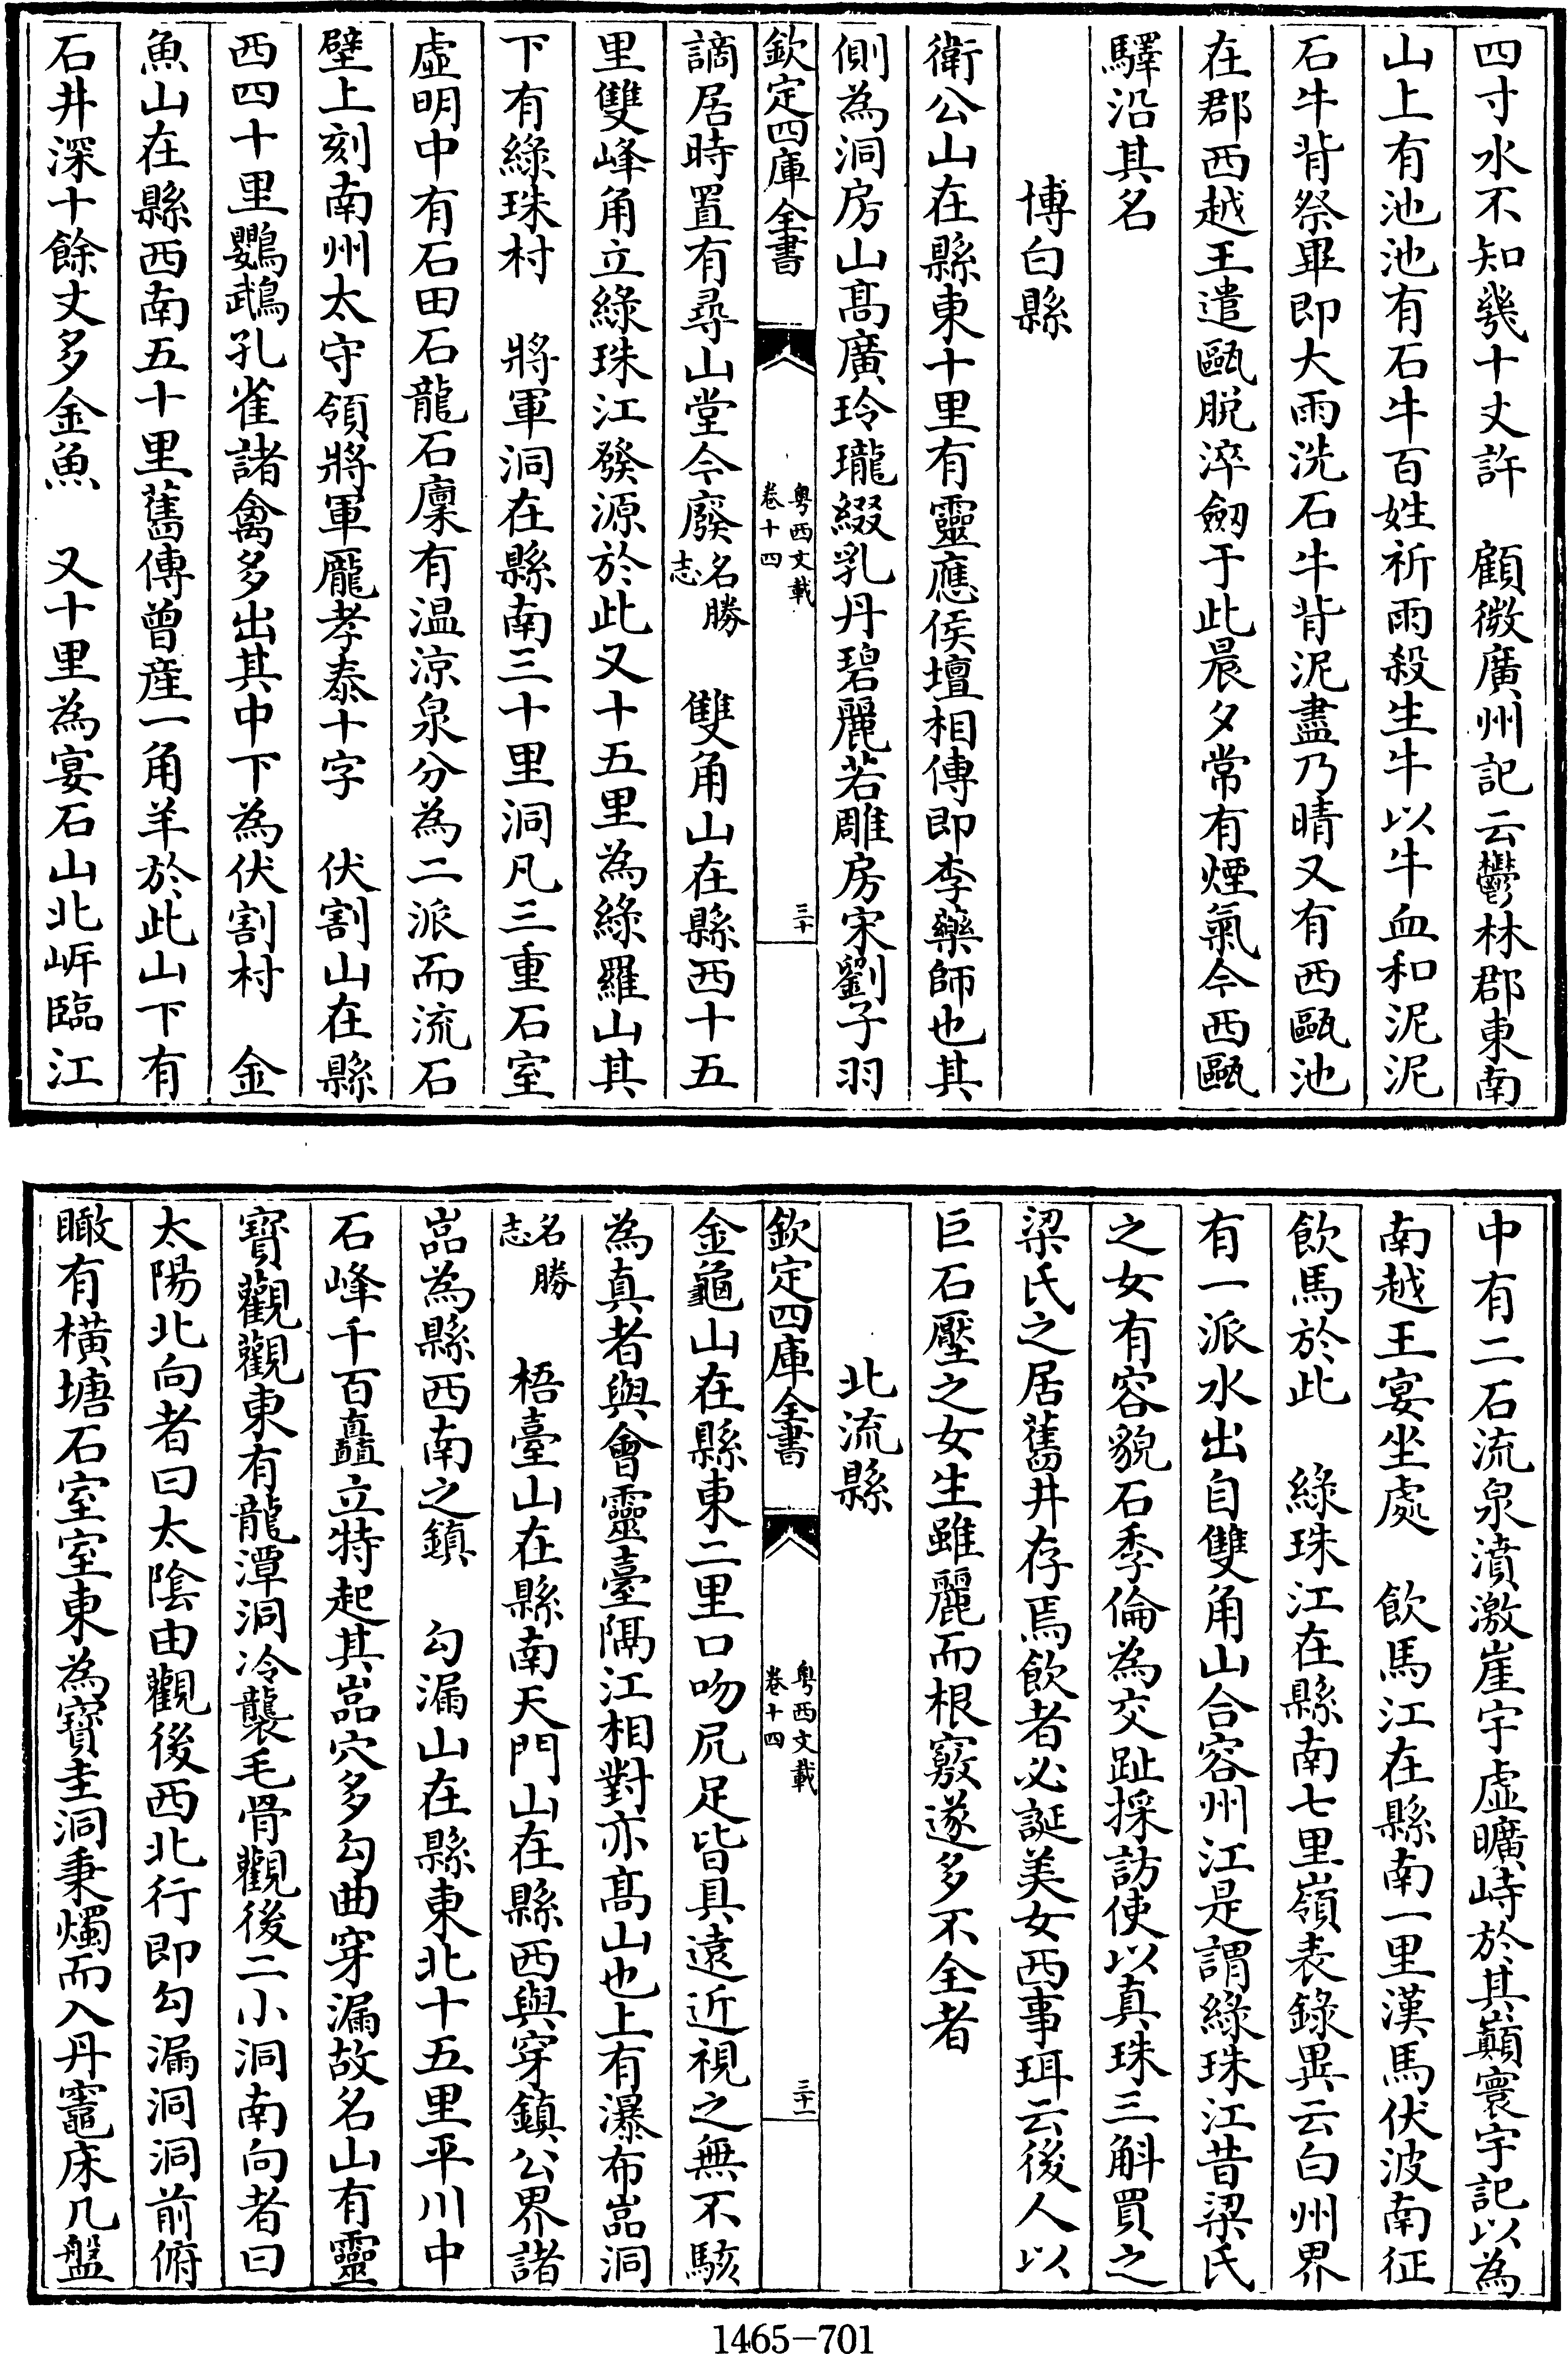 四寸水不知幾十丈許　顧微廣州記云鬱林郡東南
山上有池池有石牛百姓祈雨殺生牛以牛血和泥泥
石牛背祭畢即大雨洗石牛背泥盡乃晴又有西甌池
在郡西越王遣甌脱淬劒于此晨夕常有煙氣今西甌
驛沿其名
博白縣
衛公山在縣東十里有靈應侯壇相傳即李藥師也其
側為洞房山髙廣玲瓏綴乳丹碧麗若雕房宋劉子羽
欽定四庫全書
粤西文載
卷十四
三十
謫居時置有尋山堂今廢名勝志　雙角山在縣西十五
里雙峰角立綠珠江發源於此又十五里為綠羅山其
下有綠珠村　將軍洞在縣南三十里洞凡三重石室
虛明中有石田石龍石廩有温涼泉分為二派而流石
壁上刻南州太守領將軍龎孝泰十字　伏割山在縣
西四十里鸚鵡孔雀諸禽多出其中下為伏割村　金
魚山在縣西南五十里舊傳曾産一角羊於此山下有
石井深十餘丈多金魚　又十里為宴石山北岍臨江
中有二石流泉濆激崖宇虛曠峙於其巔寰宇記以為
南越王宴坐處　飲馬江在縣南一里漢馬伏波南征
飲馬於此　綠珠江在縣南七里嶺表錄異云白州界
有一派水出自雙角山合容州江是謂綠珠江昔梁氏
之女有容貌石季倫為交趾採訪使以真珠三斛買之
梁氏之居舊井存焉飲者必誕美女西事珥云後人以
巨石壓之女生雖麗而根竅遂多不全者
北流縣
欽定四庫全書
粤西文載
卷十四
三十一
金龜山在縣東二里口吻尻足皆具遠近視之無不駭
為真者與會靈臺隔江相對亦髙山也上有瀑布嵓洞
名勝志　梧臺山在縣南天門山在縣西與穿鎮公界諸
嵓為縣西南之鎮　勾漏山在縣東北十五里平川中
石峰千百矗立特起其嵓穴多勾曲穿漏故名山有靈
寶觀觀東有龍潭洞冷襲毛骨觀後二小洞南向者曰
太陽北向者曰太隂由觀後西北行即勾漏洞洞前俯
瞰有橫塘石室室東為寶圭洞秉燭而入丹竈床几盤
1465-701